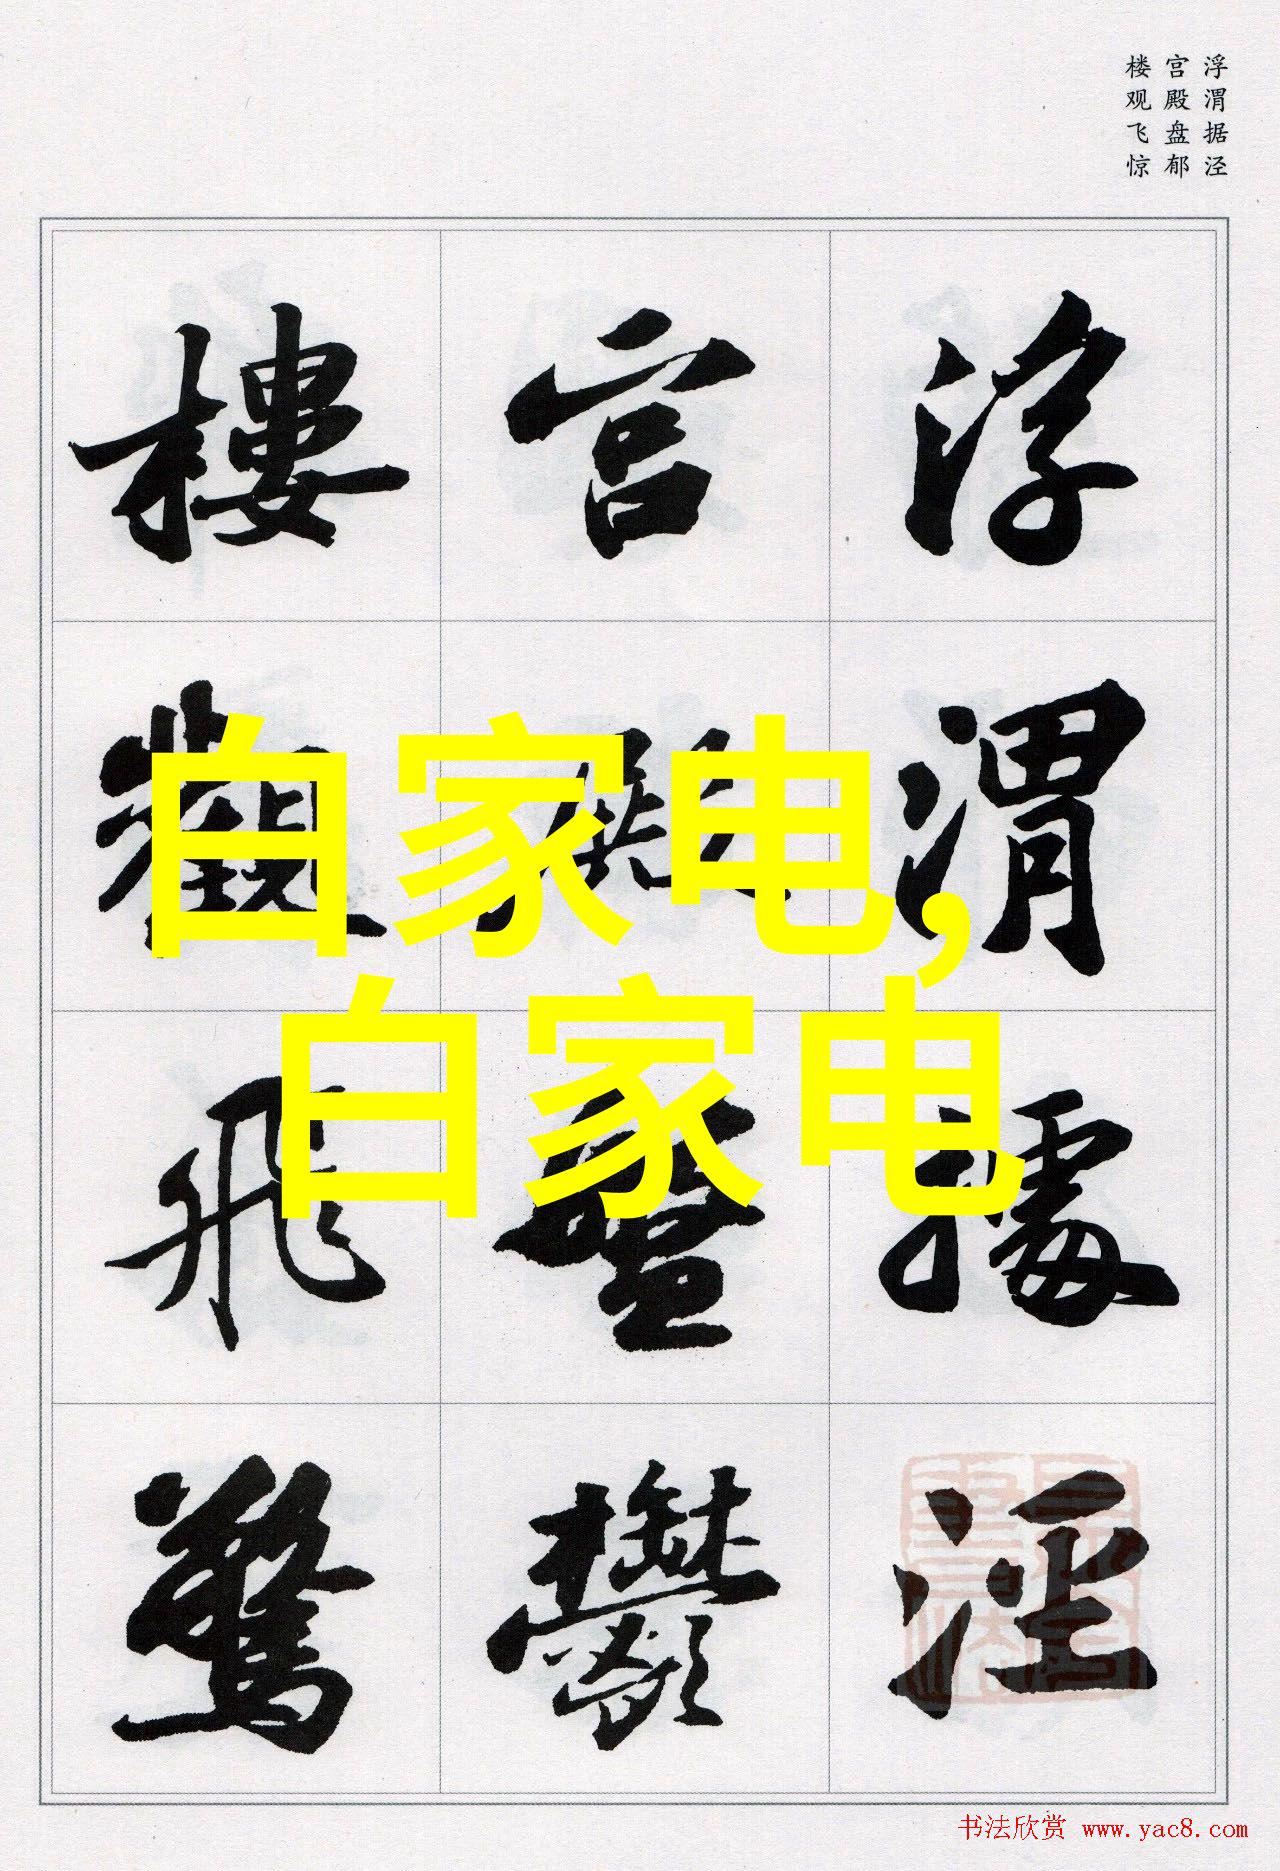 浮渭据泾
宫殿盘郁
楼观飞惊
浮渭據涇
宮殿盤鬱
樓觀飛驚
白家电,
白家电
书法欣赏 www.yac8.com